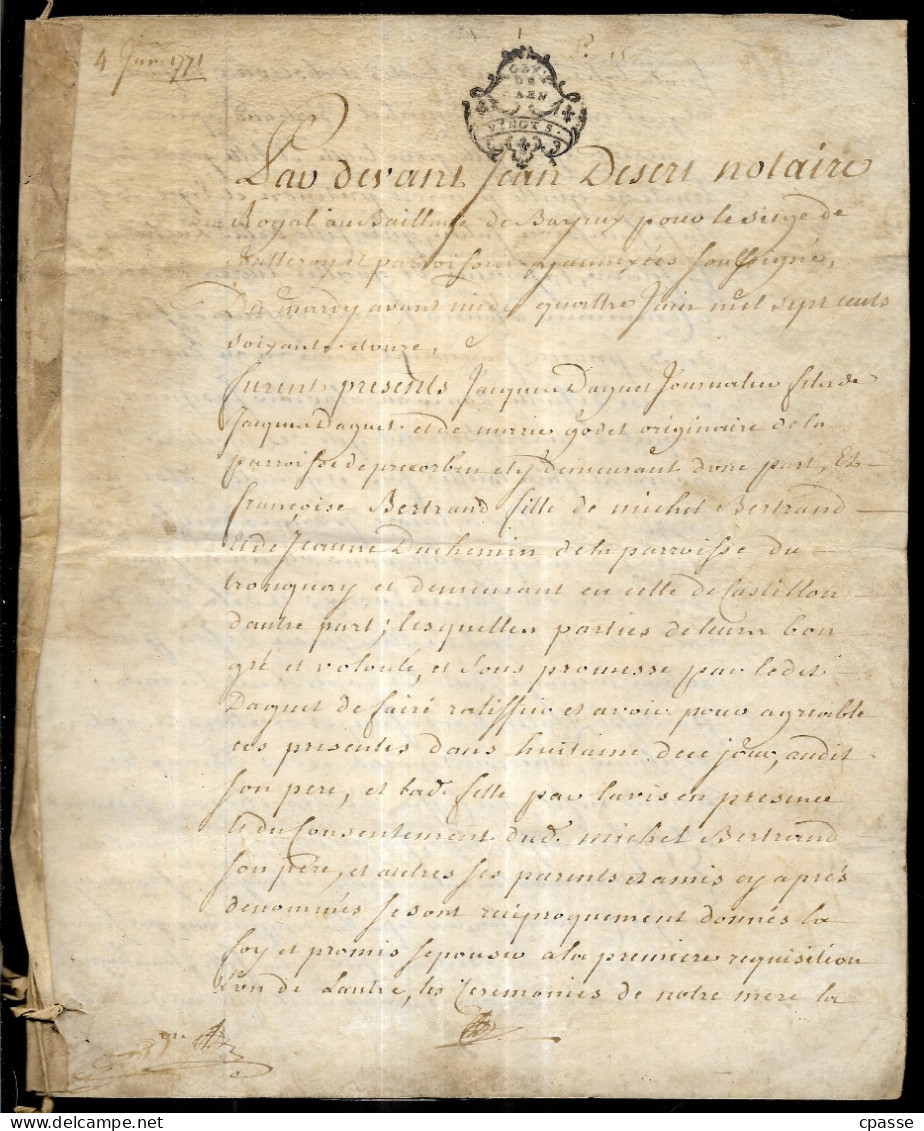 4 Juin 1771
GEN
DE
CAEN
VINGT S.
Par devant Jean Desert notaire
Royal au Bailliage de Bayeux pour le siege de
et parroisses y annexées soussigné,
Du mardy avant midy quattre Juin mil sept cents
soixante-douze,
furent presents Jacques Daguet Journalier fils de
Jacques Daguet et de marie godet originaire de la
parroisse de precorbin et y demeurant d'une part, Et
françoise Bertrand fille de michel Bertrand
et de Jeanne Duchemin de la parroisse du
tronquay et demeurant en celle de Castillon
d'autre part; lesquelles parties de leurs bon
gré et volonté, et sous promesse par ledit
Daguet de faire ratiffier et avoir pour agreable
ces presentes dans huitaine de ce jour, audit
son pere, et lad. fille par l'avis en presence
et du Consentement dud. michel Bertrand
son pere, et autres ses parents et amis cy après
denommés se sont reciproquement donnés la
foy et promis s'epouser a la premiere requisition
l'un de l'autre, les Ceremonies de notre mere la
© cpasse